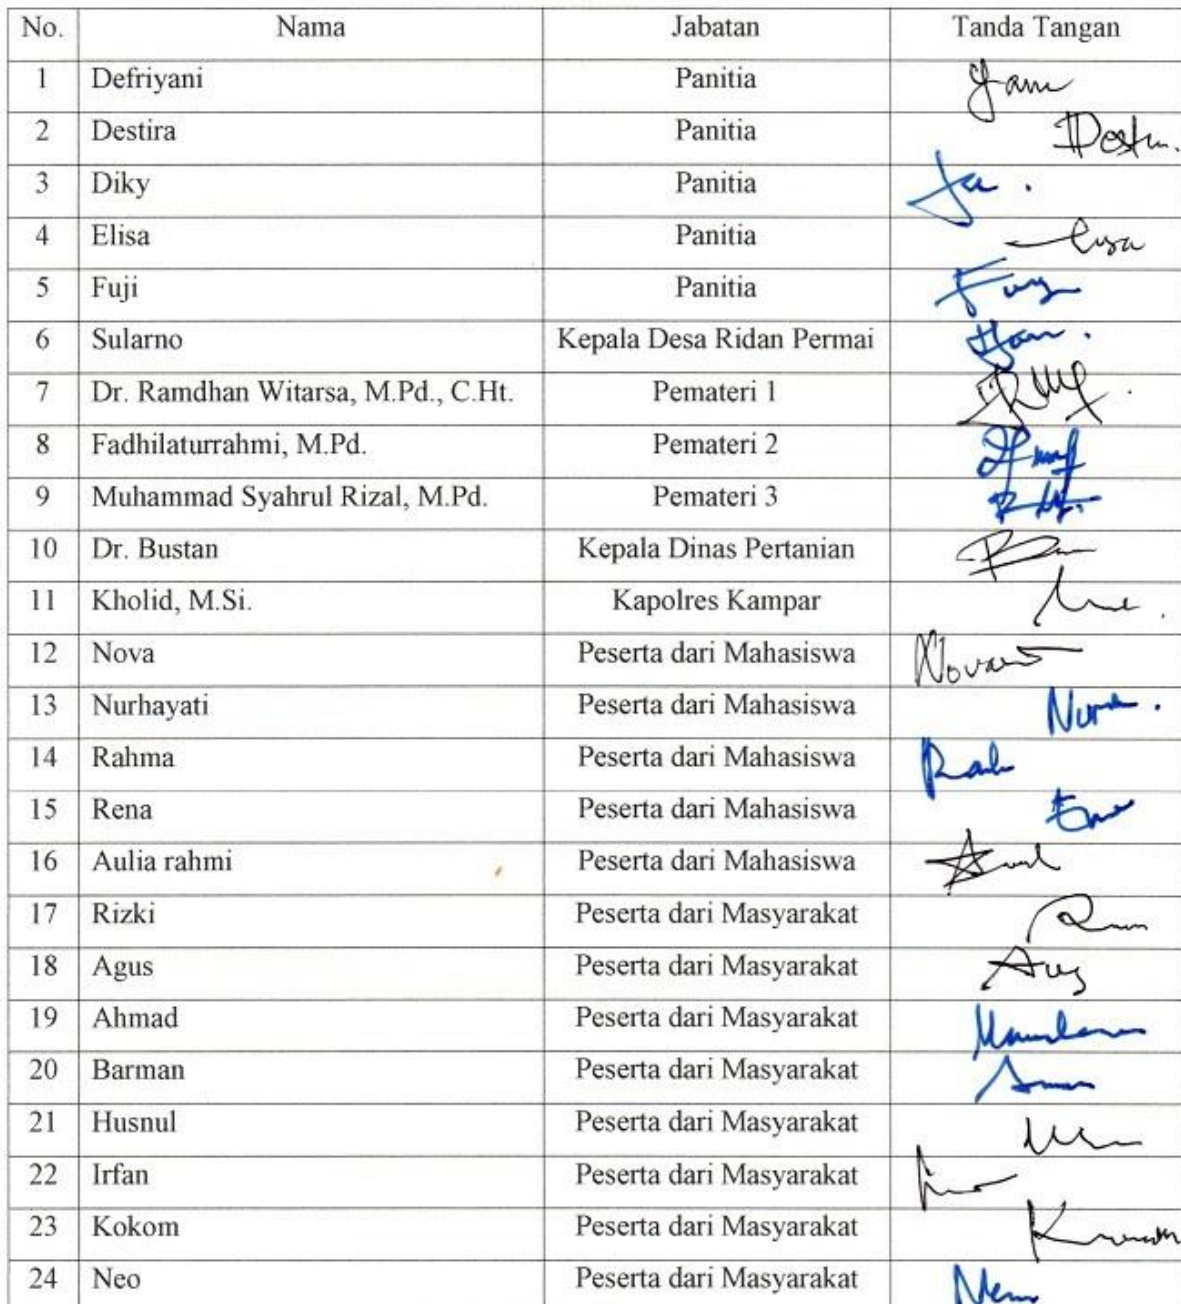 No. Nama Jabatan Tanda Tangan
1 Defriyani Panitia
2 Destira Panitia
3 Diky Panitia
4 Elisa Panitia
5 Fuji Panitia
6 Sularno Kepala Desa Ridan Permai
7 Dr. Ramdhan Witarsa, M.Pd., C.Ht. Pemateri 1
8 Fadhilaturrahmi, M.Pd. Pemateri 2
9 Muhammad Syahrul Rizal, M.Pd. Pemateri 3
10 Dr. Bustan Kepala Dinas Pertanian
11 Kholid, M.Si. Kapolres Kampar
12 Nova Peserta dari Mahasiswa
13 Nurhayati Peserta dari Mahasiswa
14 Rahma Peserta dari Mahasiswa
15 Rena Peserta dari Mahasiswa
16 Aulia rahmi Peserta dari Mahasiswa
17 Rizki Peserta dari Masyarakat
18 Agus Peserta dari Masyarakat
19 Ahmad Peserta dari Masyarakat
20 Barman Peserta dari Masyarakat
21 Husnul Peserta dari Masyarakat
22 Irfan Peserta dari Masyarakat
23 Kokom Peserta dari Masyarakat
24 Neo Peserta dari Masyarakat